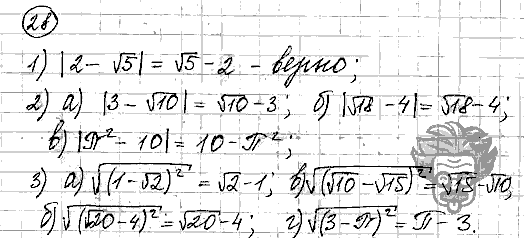 28
1) |2 - √5| = √5 - 2 - верно;
2) а) |3 - √10| = √10 - 3; б) |√18 - 4| = √18 - 4;
в) |π² - 10| = 10 - π²;
3) а) √(1 - √2)² = √2 - 1; в) √(√10 - √15)² = √15 - √10,
б) √(√20 - 4)² = √20 - 4; г) √(3 - π)² = π - 3.